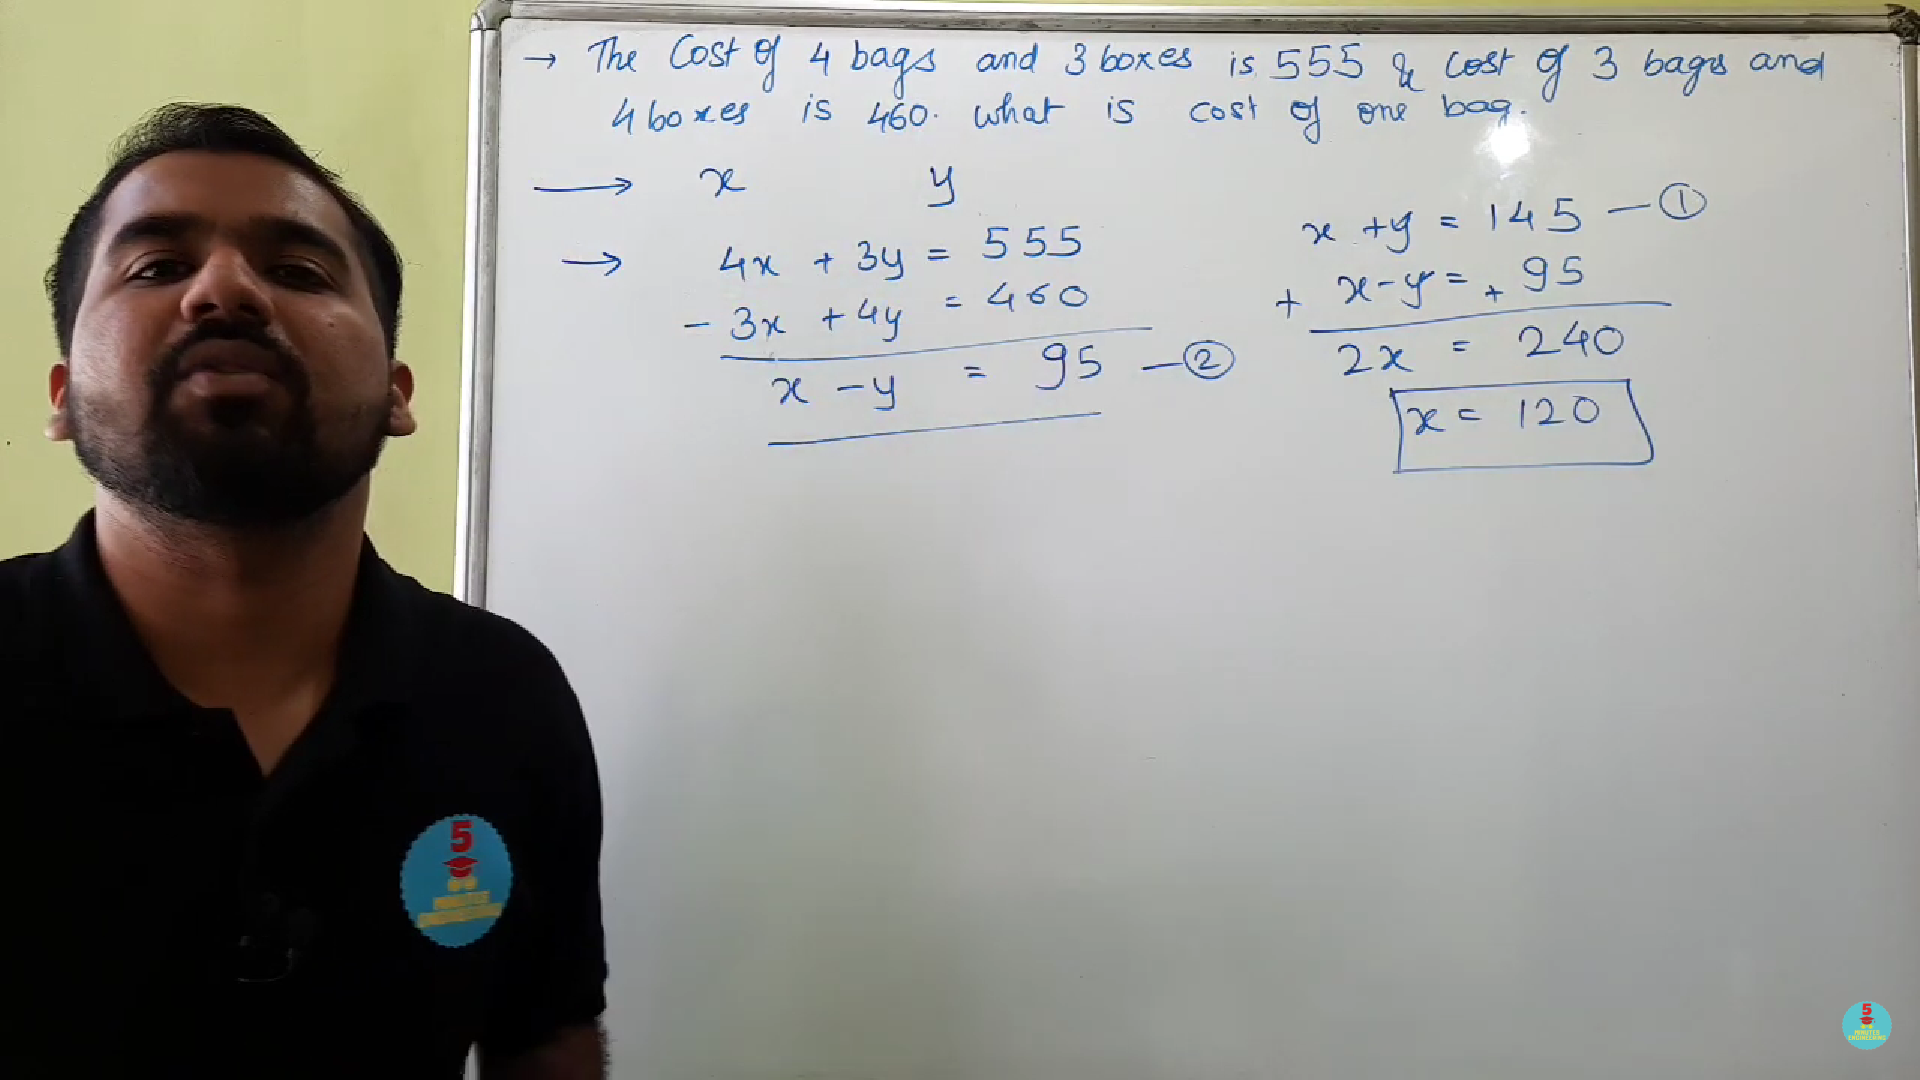 → The Cost of 4 bags and 3 boxes is 555 & cost of 3 bags and
4 boxes is 460. what is cost of one bag.
→ x y
→ 4x + 3y = 555
- 3x + 4y = 460
x - y = 95 - ②
x + y = 145 - ①
+ x - y = + 95
2x = 240
x = 120
5
MINUTES
ENGINEERING
5
MINUTES
ENGINEERING